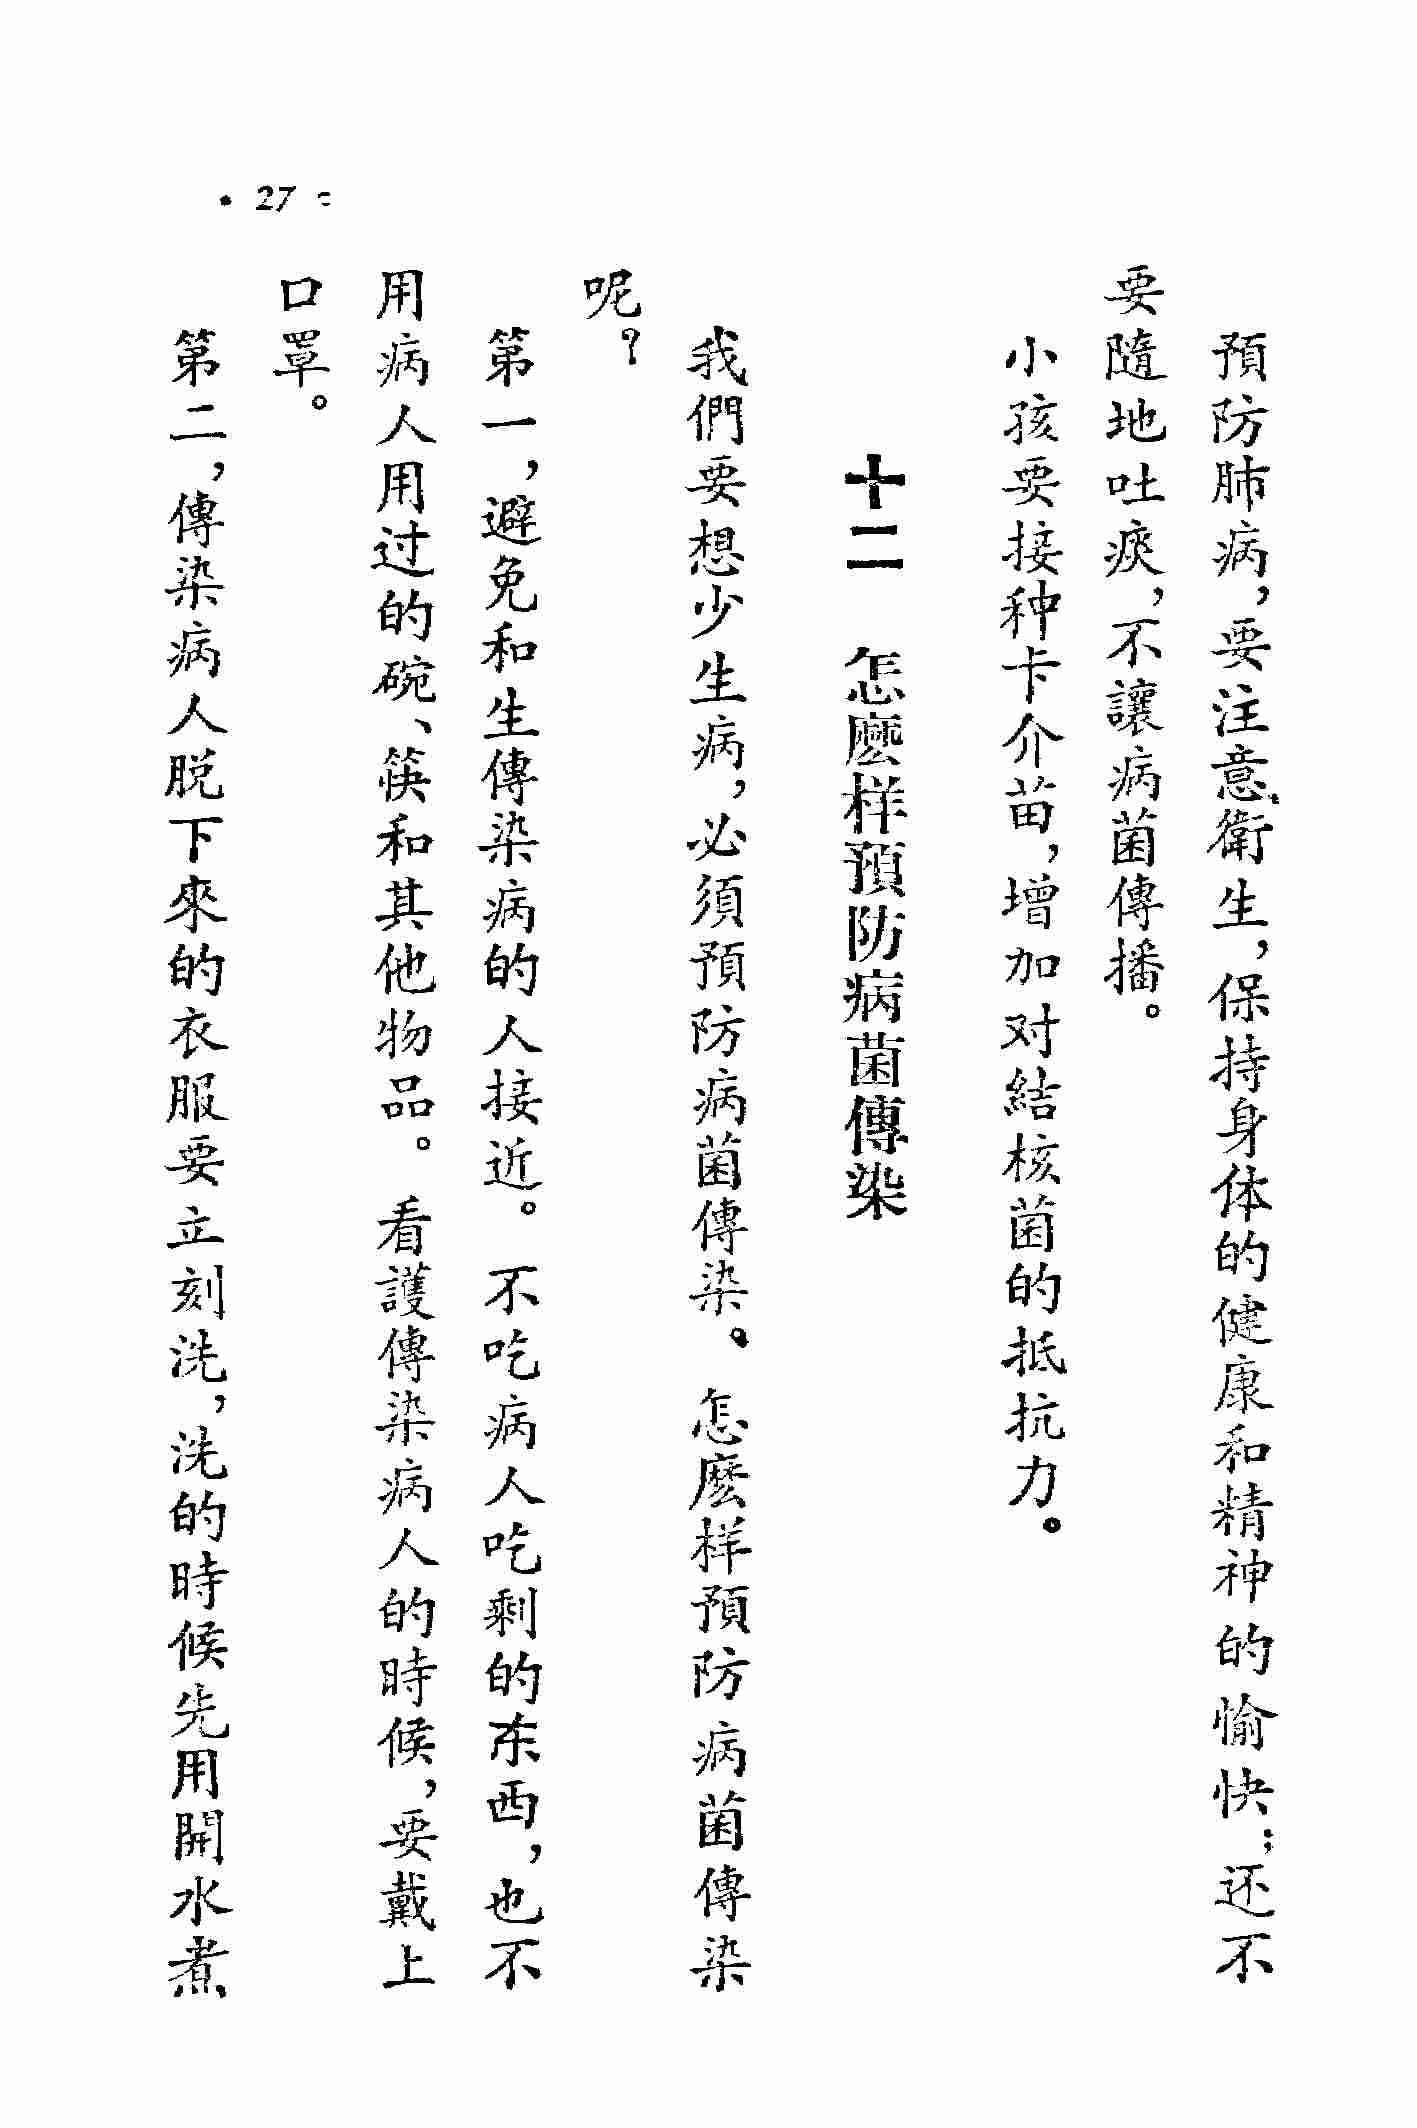 預防肺病，要注意衛生，保持身体的健康和精神的愉快；还不
要隨地吐痰，不讓病菌傳播。
小孩要接种卡介苗，增加对結核菌的抵抗力。
十二 怎麽样預防病菌傳染
我們要想少生病，必須預防病菌傳染。怎麽样預防病菌傳染
呢？
第一，避免和生傳染病的人接近。不吃病人吃剩的东西，也不
用病人用过的碗、筷和其他物品。看護傳染病人的時候，要戴上
口罩。
第二，傳染病人脱下來的衣服要立刻洗，洗的時候先用開水煮
• 27 •